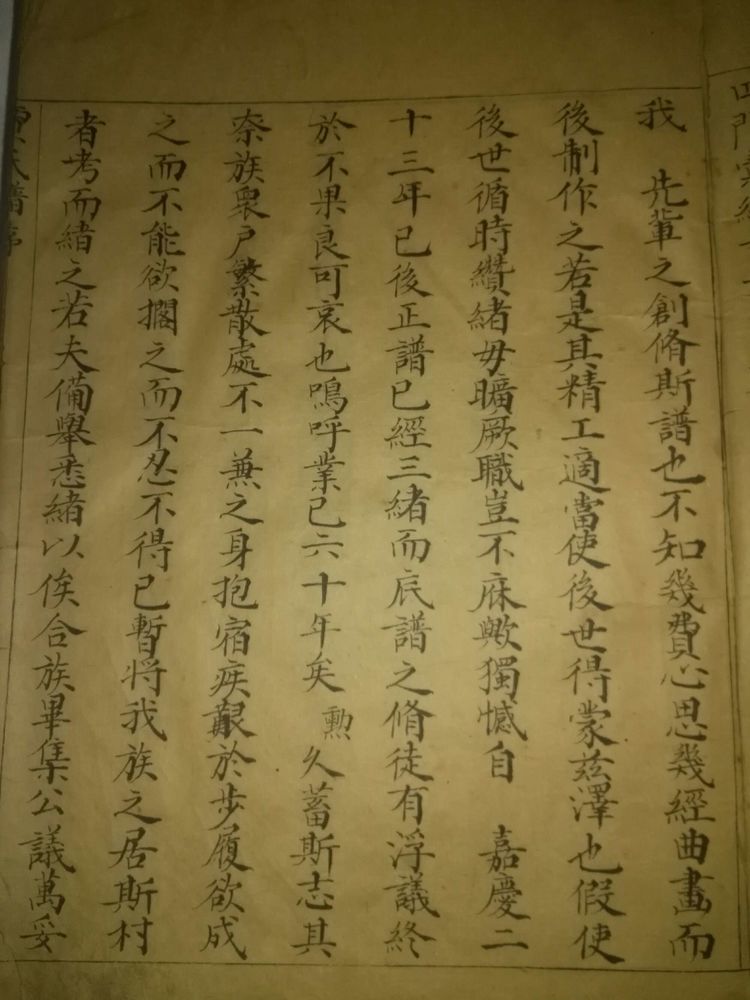 我 先輩之創脩斯譜也不知幾費心思幾經曲畫而
後制作之若是其精工適當使後世得蒙茲澤也假使
後世循時纘緒毋曠厥職豈不庥歟獨憾自 嘉慶二
十三年已後正譜已經三緒而底譜之脩徒有浮議終
於不果良可哀也嗚呼業已六十年矣 勲久蓄斯志其
奈族衆户繁散處不一兼之身抱宿疾艱於步履欲成
之而不能欲擱之而不忍不得已暫將我族之居斯村
者考而緒之若夫備舉悉緒以俟合族畢集公議萬妥
氏譜序